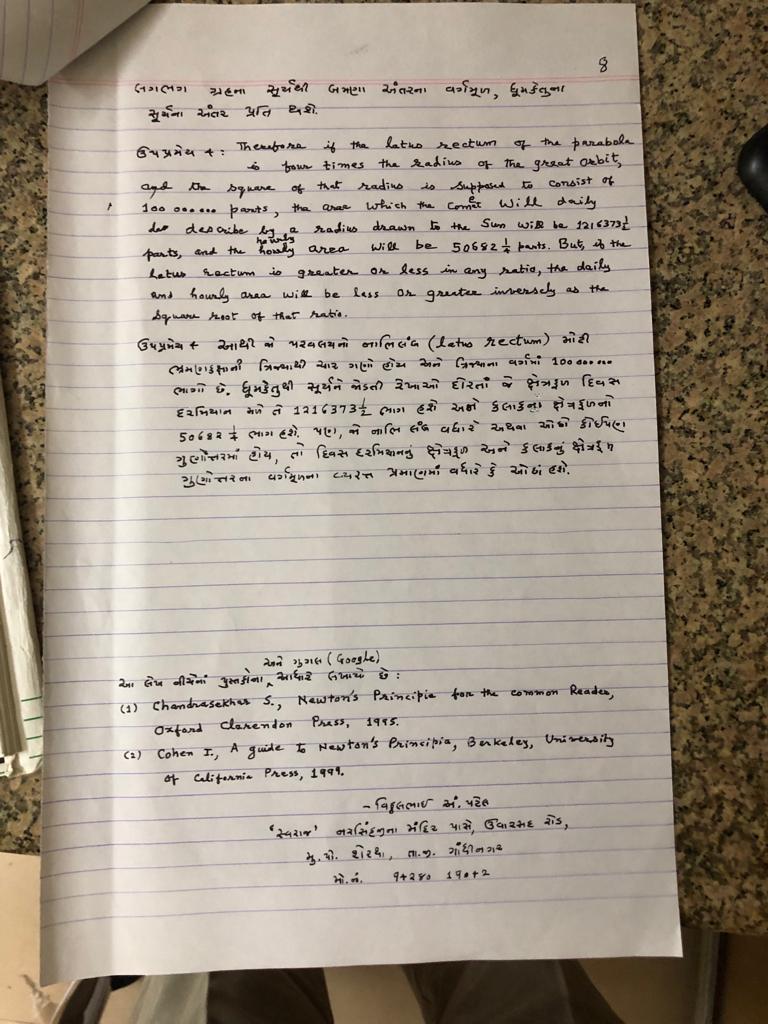 8
લગભગ ગ્રહના સૂર્યથી બમણા અંતરના વર્ગમૂળ, ધૂમકેતુના
સૂર્યના અંતર પ્રતિ થશે.
ઉપપ્રમેય ૪ : Therefore if the latus rectum of the parabola
is four times the radius of the great orbit,
and the square of that radius is supposed to consist of
100 000000 parts, the area which the comet will daily
describe by a radius drawn to the Sun will be 1216373½
parts, and the hourly area will be 50682¼ parts. But, if the
latus rectum is greater or less in any ratio, the daily
and hourly area will be less or greater inversely as the
square root of that ratio.
ઉપપ્રમેય ૪ આથી જો પરવલયનો નાભિલંબ (latus rectum) મોટી
ભ્રમણકક્ષાની ત્રિજ્યાથી ચાર ગણો હોય અને ત્રિજ્યાના વર્ગમાં 100 000000
ભાગો છે. ધૂમકેતુથી સૂર્યને જોડતી રેખાઓ દોરતાં જે ક્ષેત્રફળ દિવસ
દરમિયાન મળે તે 1216373½ ભાગ હશે અને કલાકના ક્ષેત્રફળનો
50682¼ ભાગ હશે. પણ, જો નાભિ લંબ વધારે અથવા ઓછો કોઈપણ
ગુણોત્તરમાં હોય, તો દિવસ દરમિયાનનું ક્ષેત્રફળ અને કલાકનું ક્ષેત્રફળ
ગુણોત્તરના વર્ગમૂળના વ્યસ્ત પ્રમાણમાં વધારે કે ઓછું હશે.
અને ગુગલ (Google)
આ લેખ નીચેનાં પુસ્તકોના આધારે લખાયો છે :
(1) Chandrasekhar S., Newton's Principia for the common Reader,
Oxford Clarendon Press, 1995.
(2) Cohen I., A guide to Newton's Principia, Berkeley, University
of California Press, 1999.
- વિઠ્ઠલભાઇ અં. પટેલ
'સ્વરાજ' નરસિંહજીના મંદિર પાસે, ઉવારસદ રોડ,
મુ. પો. શેરથા, તા.જી. ગાંધીનગર
મો. નં. ૧૪૨૪૦ 1૧૦૪2